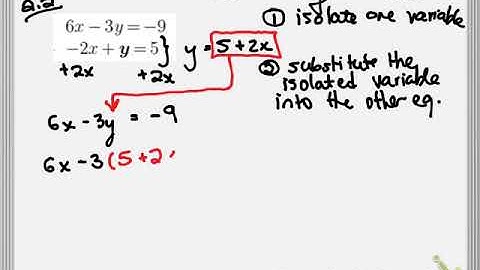 2.2
6x - 3y = -9
-2x + y = 5} y = 5+2x
+2x +2x
① isolate one variable
② substitute the
isolated variable
into the other eq.
6x - 3y = -9
6x - 3(5+2